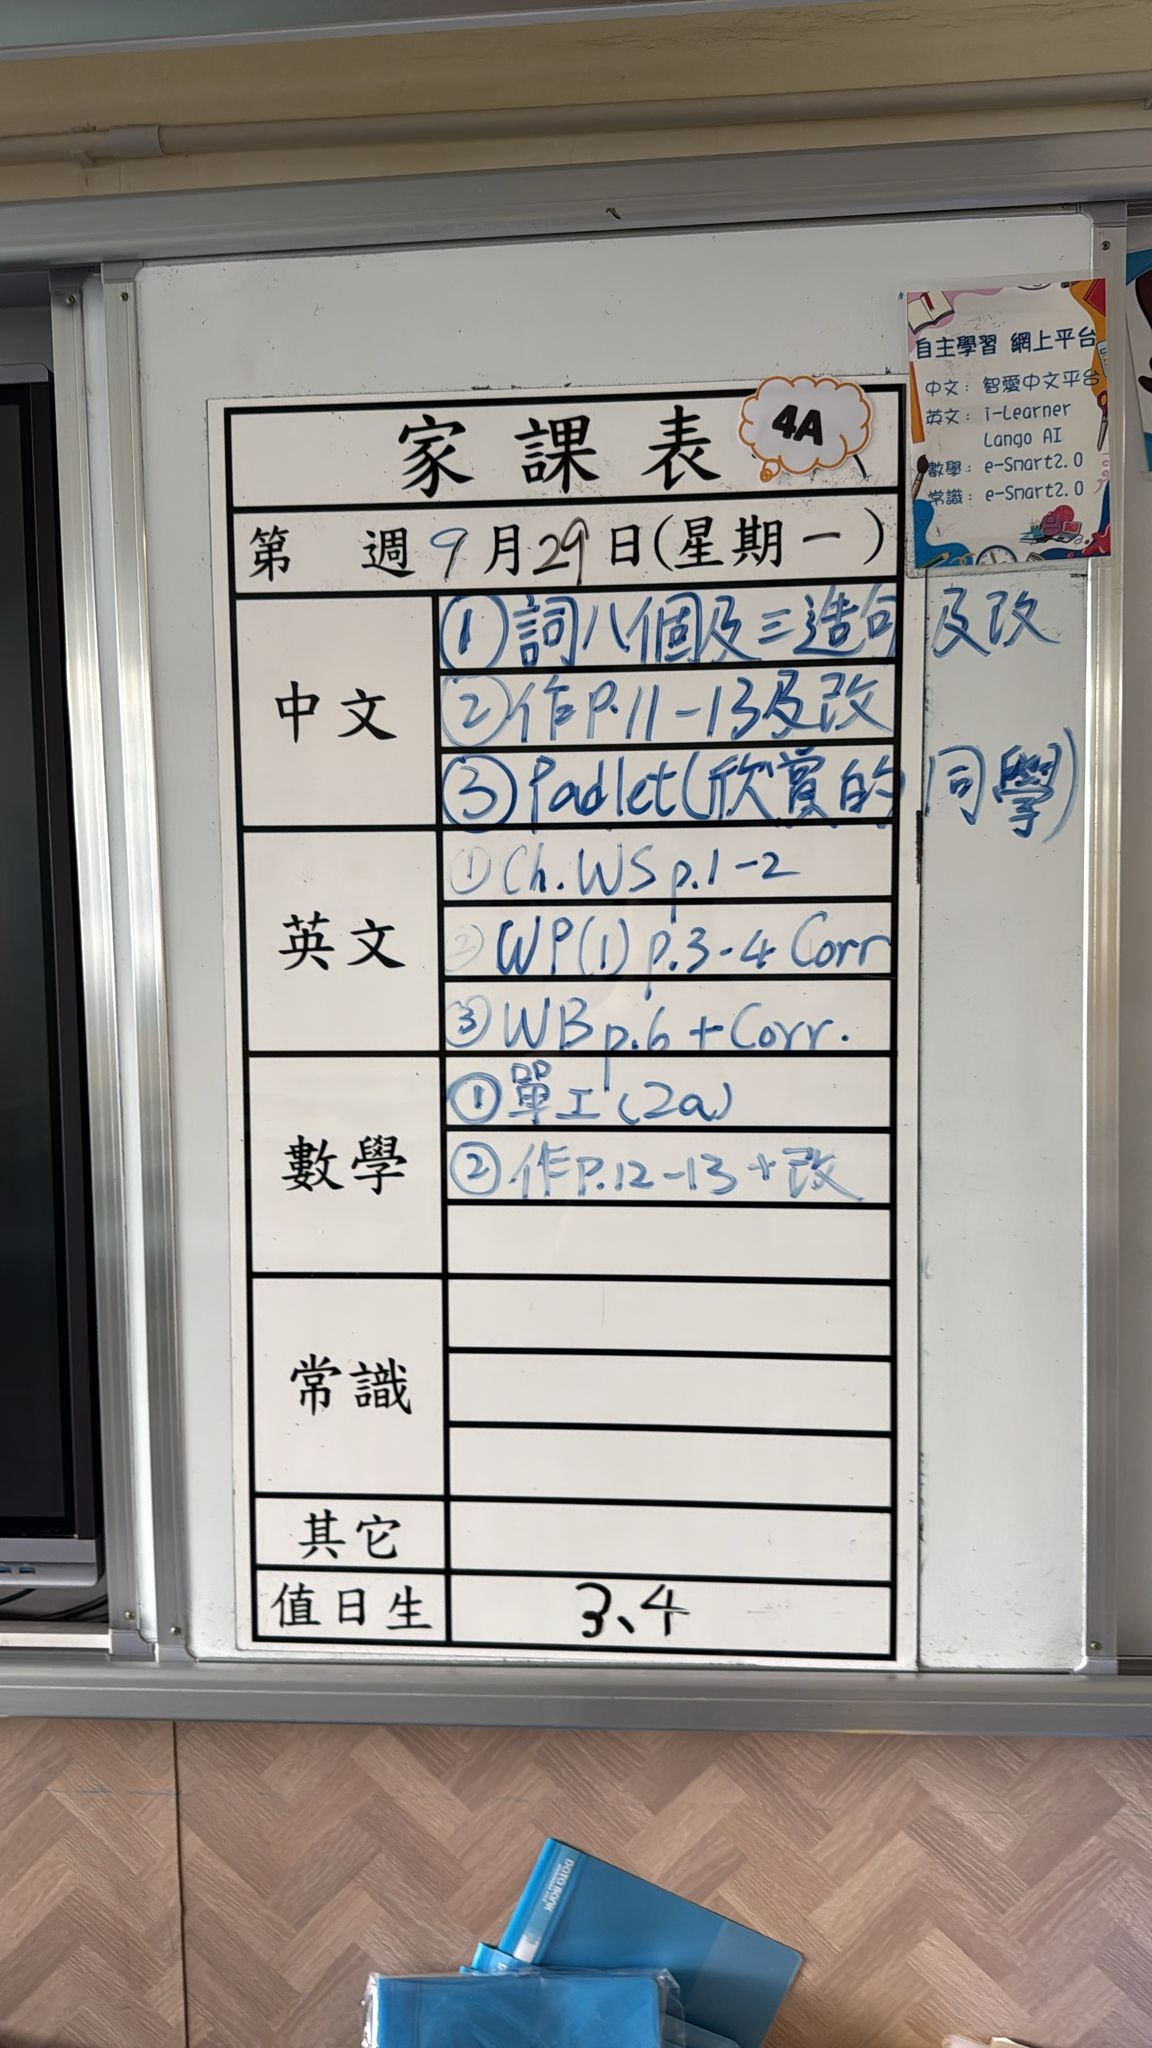 家課表
4A
第 週 9月29日(星期一)
中文
①詞八個及三造句及改
②作P.11-13及改
③Padlet(欣賞的同學)
英文
①Ch.WS p.1-2
②WP(1) p.3-4 Corr
③WB p.6 + Corr.
數學
①單工(2a)
②作P.12-13+改
常識
其它
值日生
3、4
自主學習 網上平台
中文：智愛中文平台
英文：i-Learner
Lango AI
數學：e-Smart2.0
常識：e-Smart2.0